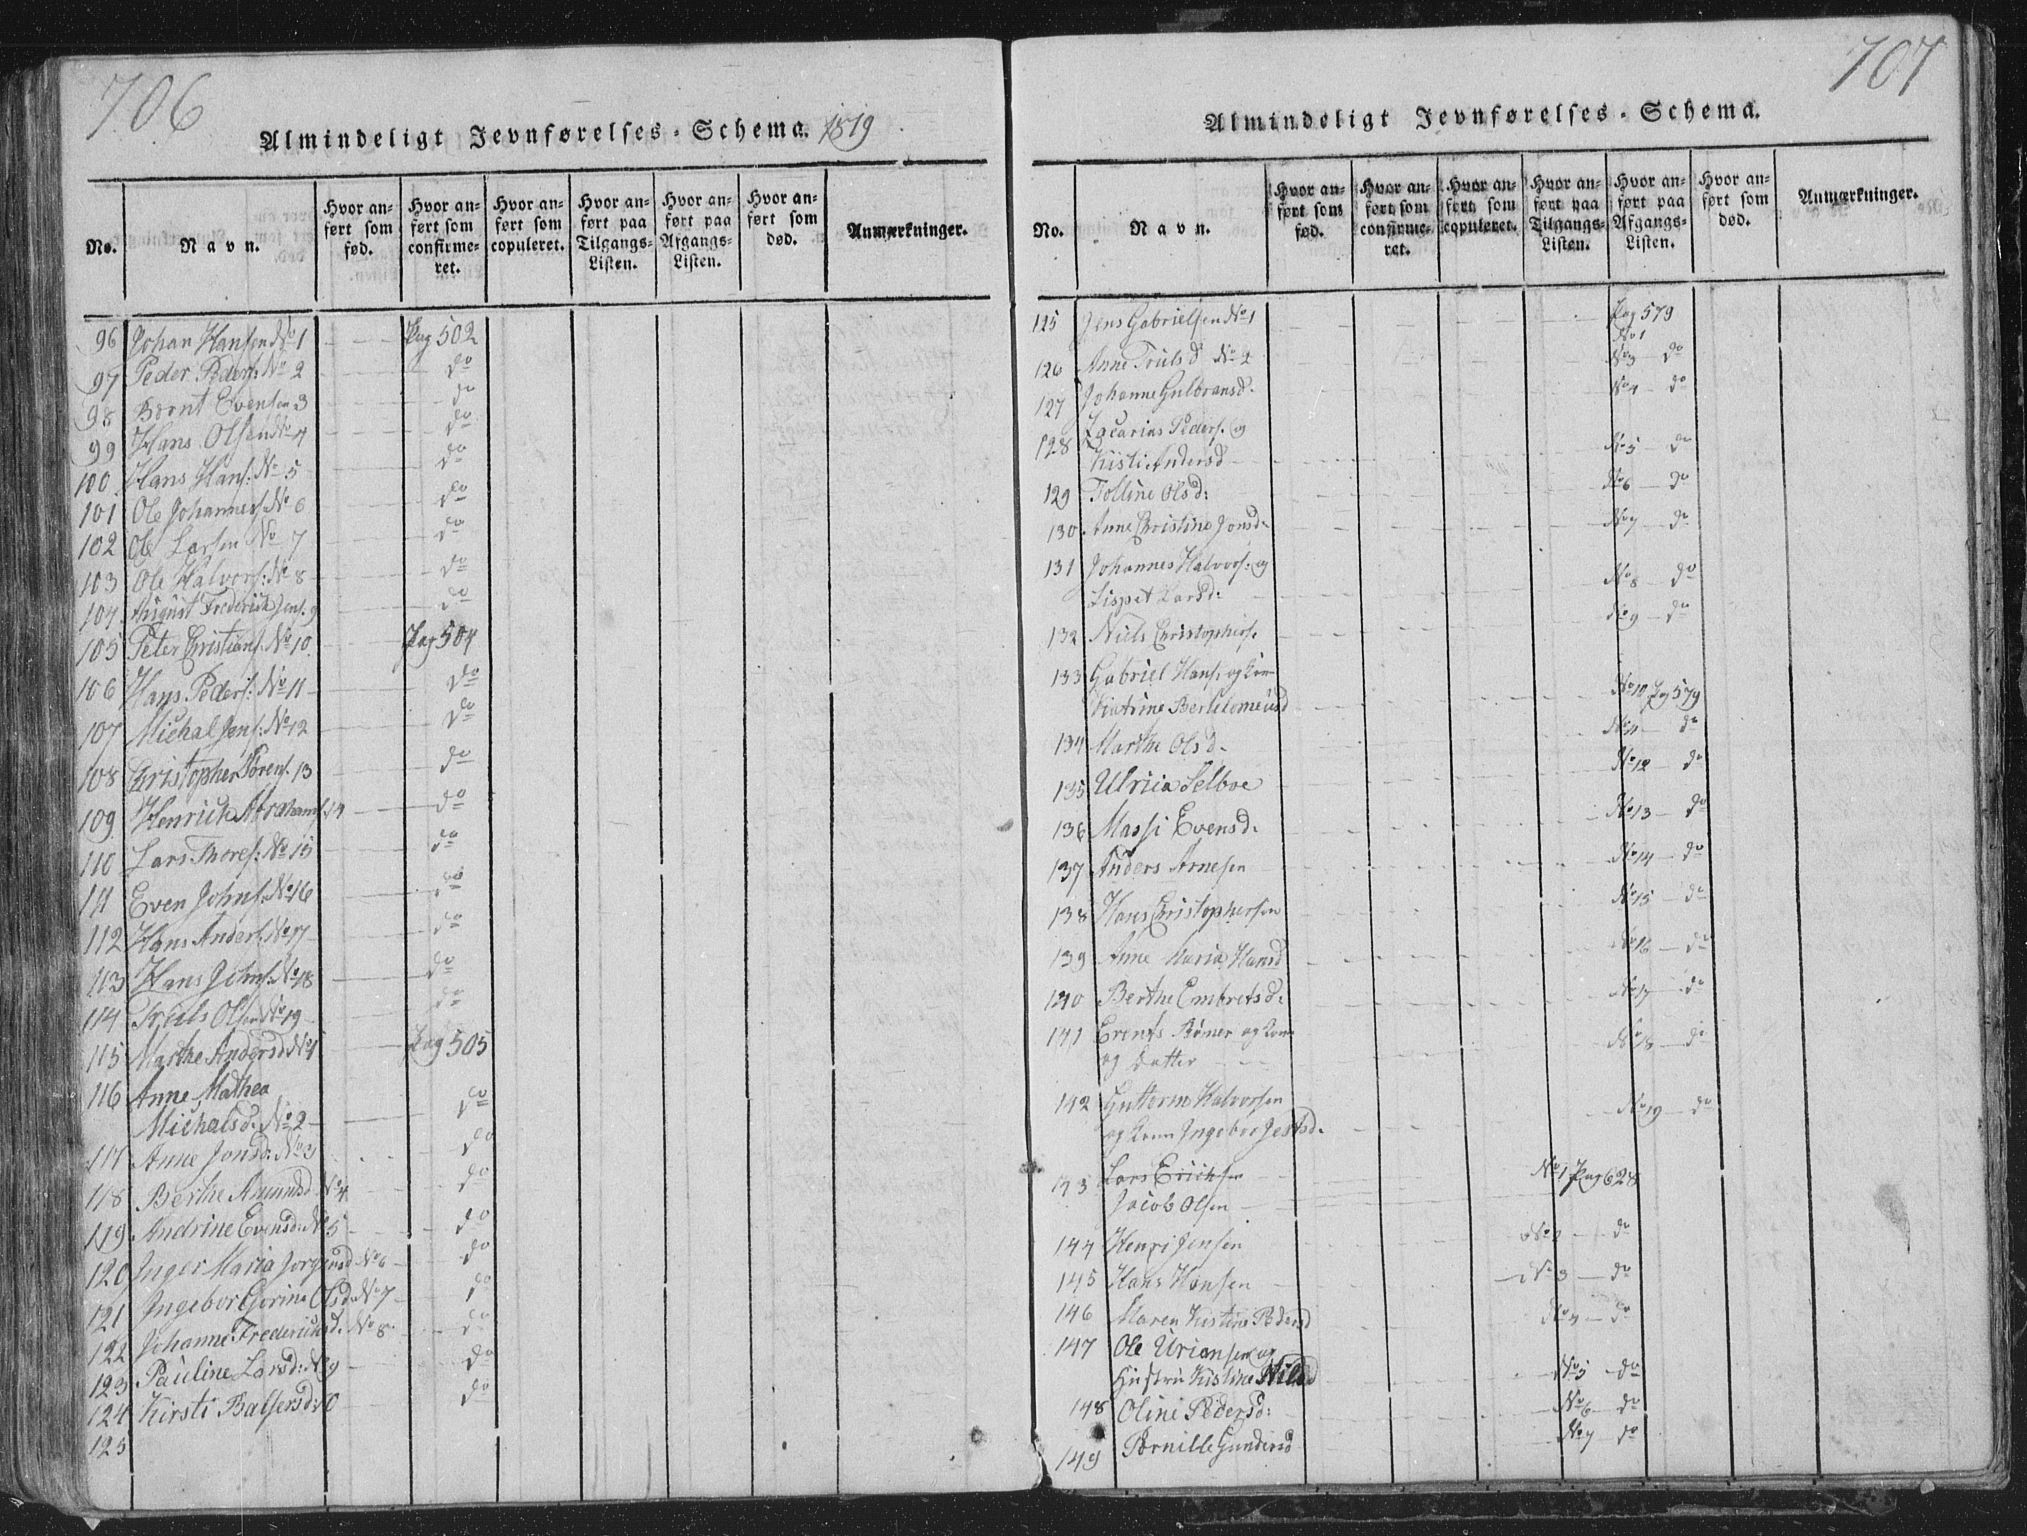 706
Almindeligt Jevnførelses-Schema. 1819
No.
Navn.
Hvor anført som fød.
Hvor anført som confirmeret.
Hvor anført som copuleret.
Hvor anført paa Tilgangs-Listen.
Hvor anført paa Afgangs-Listen.
Hvor anført som død.
Anmærkninger.
96 Johan Hansen No 1 Pag 502
97 Peder Peders: No 2 do
98 Bernt Evensen 3 do
99 Hans Olsen No 4 do
100 Hans Hans: No 5 do
101 Ole Johannes: No 6 do
102 Ole Larsen No 7 do
103 Ole Halvors: No 8 do
104 August Frederick Jens. 9 do
105 Peter Christians: No 10 Pag 504
106 Hans Peders: No 11 do
107 Michal Jens: No 12 do
108 Christopher Sørens. 13 do
109 Henrich Abrahams. 14 do
110 Lars Thores: No 15 do
111 Even Johns: No 16 do
112 Hans Anders: No 17 do
113 Hans Johns: No 18 do
114 Truls Olsen No 19 do
115 Marthe Andersd No 1 Pag 505
116 Anne Mathea
Michalsd: No 2 do
117 Anne Jonsd: No 3 do
118 Berthe Amundsd No 4 do
119 Andrine Evensd: No 5 do
120 Inger Maria Jorgensd No 6 do
121 Ingebor Gorine Olsd: No 7 do
122 Johanne Fredericksd: No 8 do
123 Pauline Larsd: No 9 do
124 Kirsti Balsersd: 10 do
125
707
Almindeligt Jevnførelses-Schema.
No.
Navn.
Hvor anført som fød.
Hvor anført som confirmeret.
Hvor anført som copuleret.
Hvor anført paa Tilgangs-Listen.
Hvor anført paa Afgangs-Listen.
Hvor anført som død.
Anmærkninger.
125 Jens Gabrielsen No 1 Pag 579
No 1
126 Anne Truls d No 2 No 3 do
127 Johanne Gulbransd. No 4 do
128 Zacarias Peders. og
Kisti Andersd No 5 do
129 Tolline Olsd: No 6 do
130 Anne Christine Jonsd. No 7 do
131 Johannes Halvors. og
Lispet Larsd: No 8 do
132 Niels Christophers. No 9 do
133 Gabriel Hans. og Kone
Katrine Berthlomeusd No 10 Pag 579
134 Marthe Olsd. No 11 do
135 Ulricia Selboe No 12 do
136 Massi Evensd. No 13 do
137 Anders Arnesen No 14 do
138 Hans Christophersen No 15 do
139 Anne Maria Hansd No 16 do
140 Berthe Embretsd. No 17 do
141 Erents Rømer og Kone
og Datter No 18 do
142 Guttorm Halvorsen
og Kone Ingebor No 19 do
143 Lars Erichsen No 1 Pag 628
Jacob Olsen
144 Jensen No 2 do
145 Hans Hansen No 3 do
146 Maren Kistine Pedersd No 4 do
147 Ole Uriansen og
Hustru Kistine Nilsd No 5 do
148 Oline Pedersd: No 6 do
149 Pernille Gundersd No 7 do